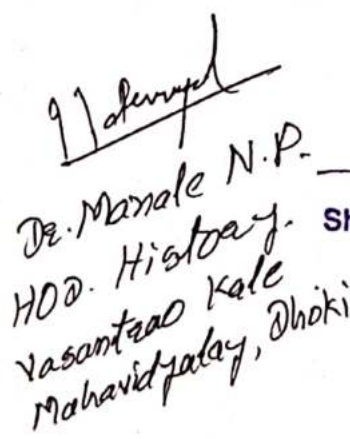 Dr. Manale N.P.
HOD. History.
Vasantrao Kale
Mahavidyalay, Dhoki
Sh